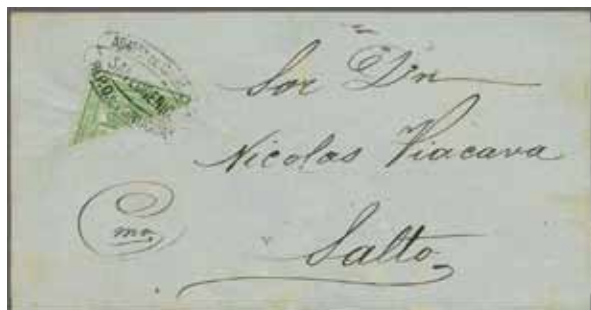 Sor Dn
Nicolas Viacava
Salto